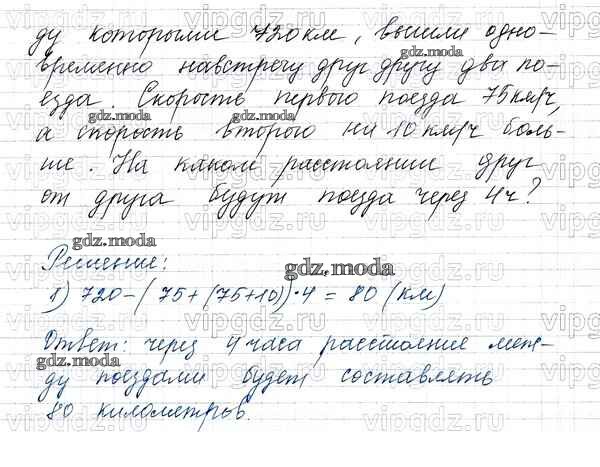 ду которыми 720 км, вышли одно-
временно навстречу друг другу два по-
езда. Скорость первого поезда 75 км/ч,
а скорость второго на 10 км/ч боль-
ше. На каком расстоянии друг
от друга будут поезда через 4ч?
Решение:
1) 720-(75+(75+10))·4=80 (км)
Ответ: через 4 часа расстояние меж-
ду поездами будет составлять
80 километров.
vipgdz.ru
gdz.moda